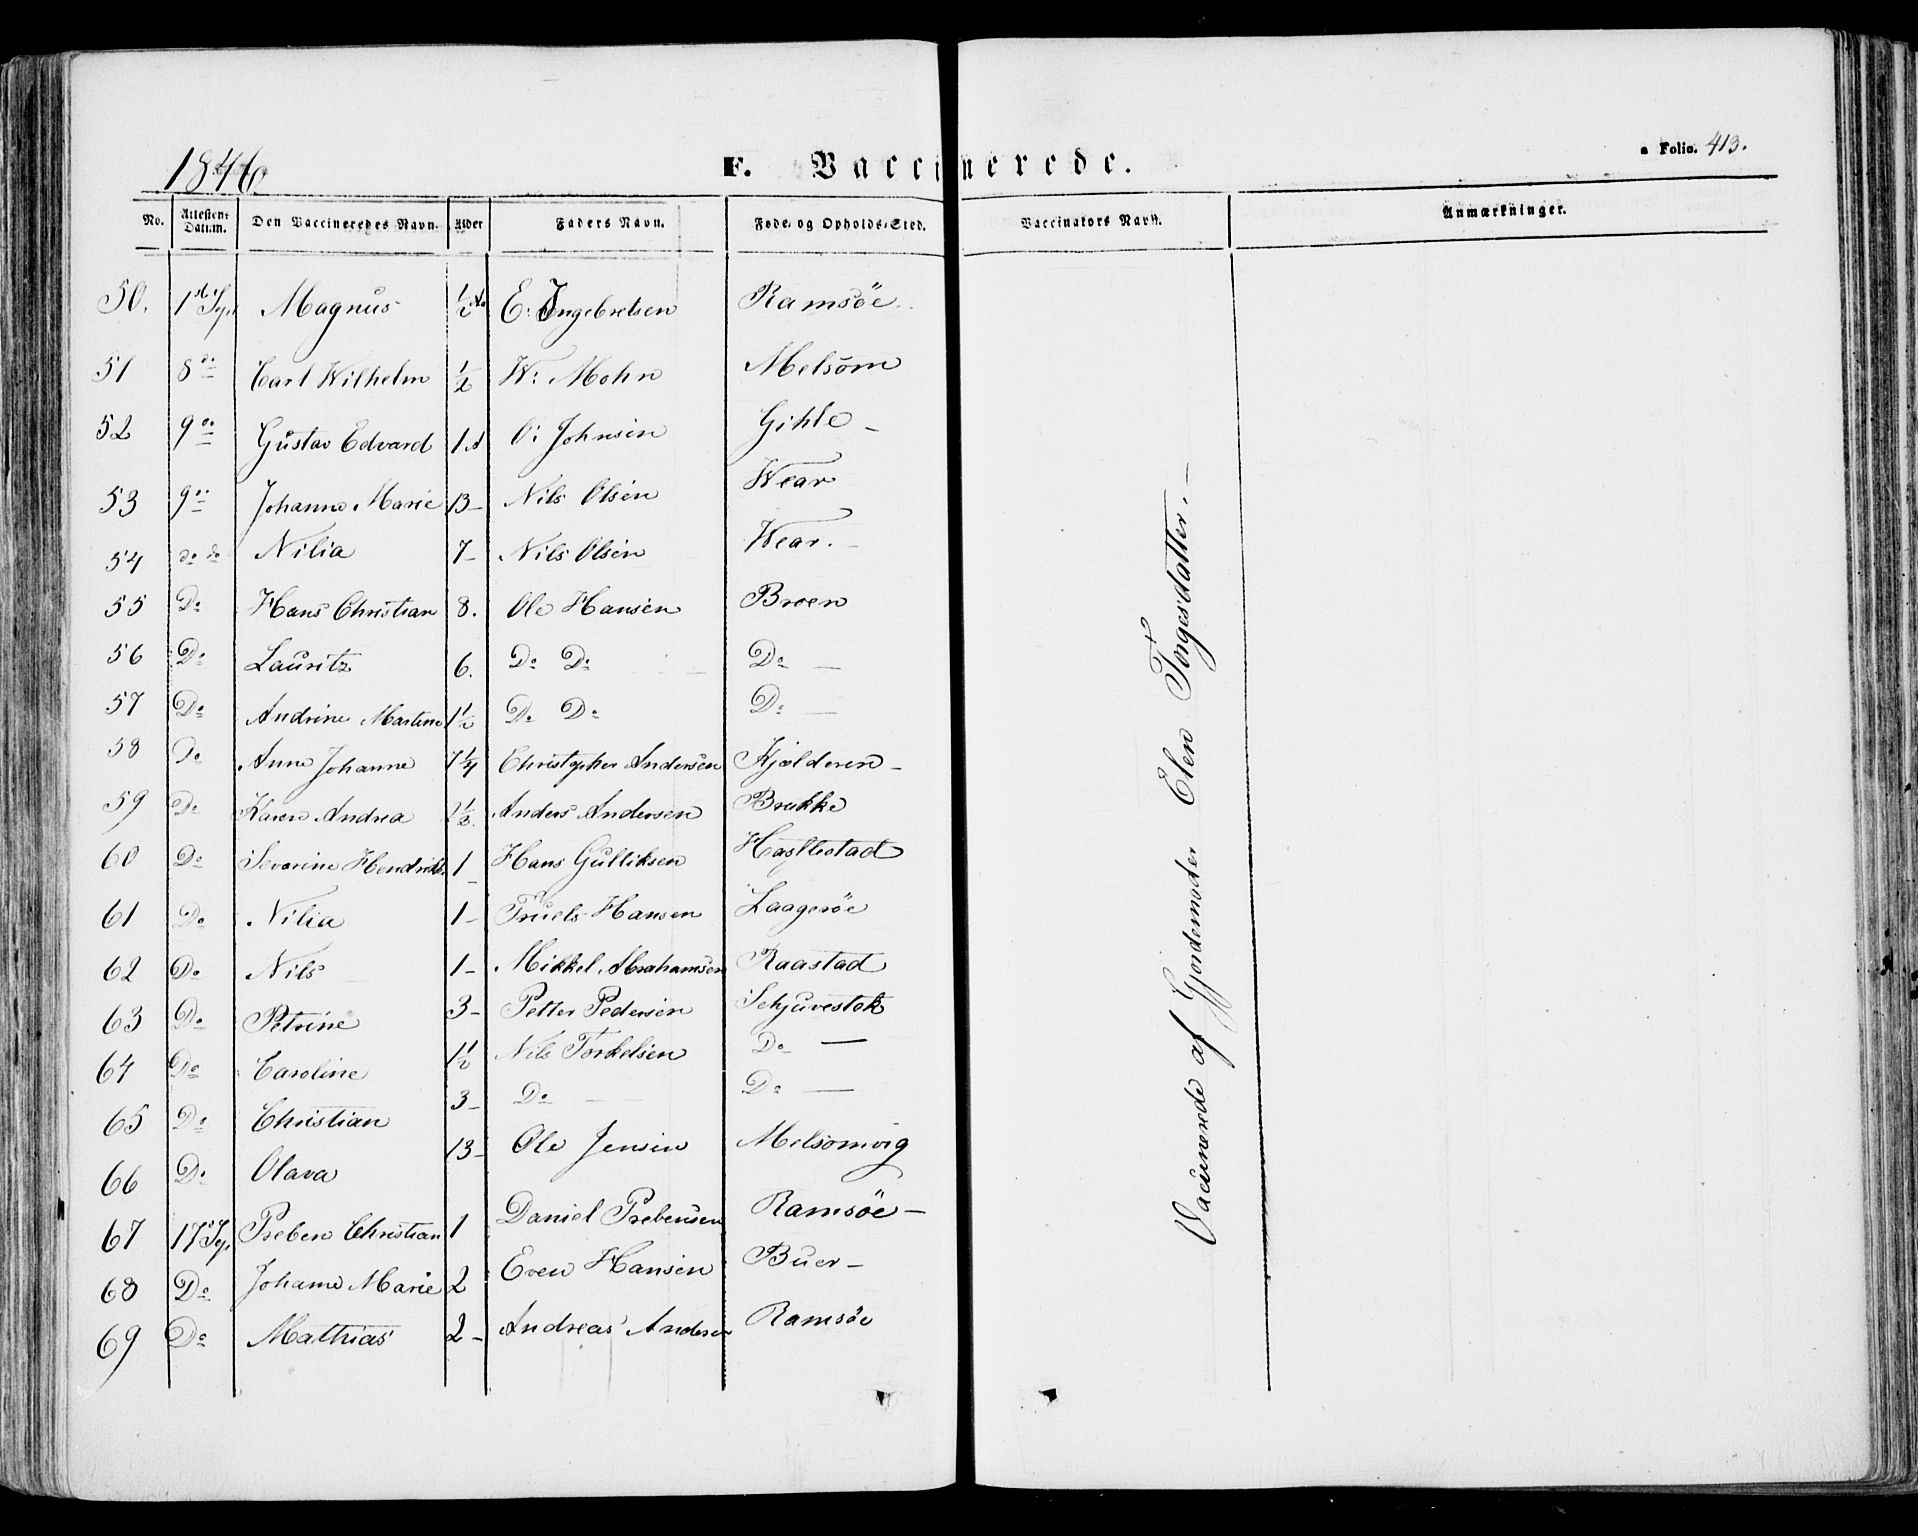 1846
F. Vaccinerede.
a Folio. 413.
No. Attestens Datum. Den Vaccineredes Navn. Alder Faders Navn. Føde- og Opholds-Sted. Vaccinators Navn. Anmærkninger.
50. 1st Sep. Magnus ½ A. E: Ingebretsen Ramsöe
51 8 do Carl Wilhelm ½ W: Mohn Melsom
52 9 do Gustav Edvard 1 A O: Johnsen Gihle -
53 9 do Johanne Marie 13- Nils Olsen Wear
54 do do Nilia 7- Nils Olsen Wear. -
55 Do Hans Christian 8. Ole Hansen Broen
56 Do Lauritz 6. Do Do Do -
57 Do Andrine Martine 1½ Do Do Do -
58 Do Anne Johanne 1¼ Christopher Andersen Kjölderen -
59 Do Karen Andrea 1½ Anders Andersen Brekke
60 Do Severine Hendrikke 1- Hans Gulliksen
61 Do Nilia 1- Truels Hansen Laageröe
62 Do Nils 1- Mikkel Abrahamsen Raastad
63 Do Petrine 3- Petter Pedersen Schjuvestok
64 Do Caroline 1½ Nils Torkelsen Do -
65 Do Christian 3- Do Do -
66 Do Olava 13- Ole Jensen Melsomvig
67 17 Sep. Preben Christian 1 Daniel Prebensen Ramsöe -
68 Do Johanne Marie 2 Even Hansen Buer -
69 Do Mathias 2- Andreas Andersen Ramsöe
Vacinerede af Gjordemoder Elen Torgesdatter. -